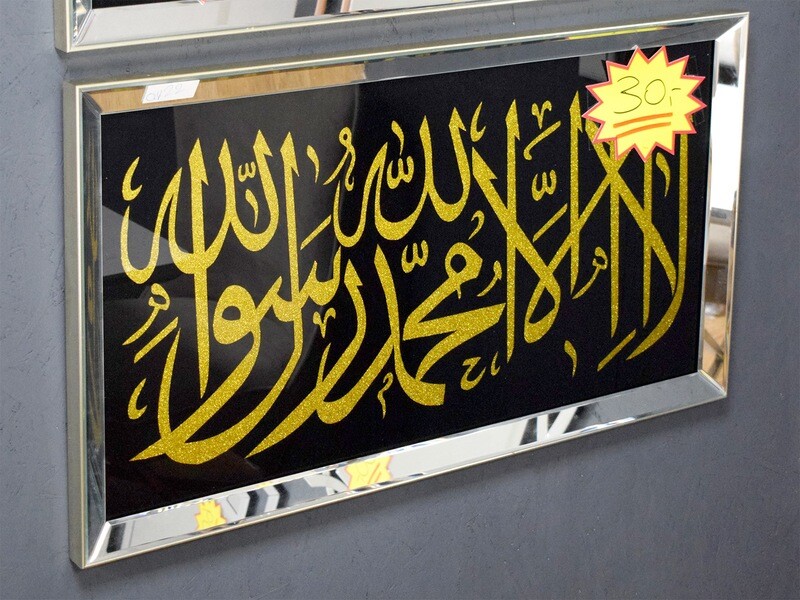 لا إله إلا الله محمد رسول الله
30,-